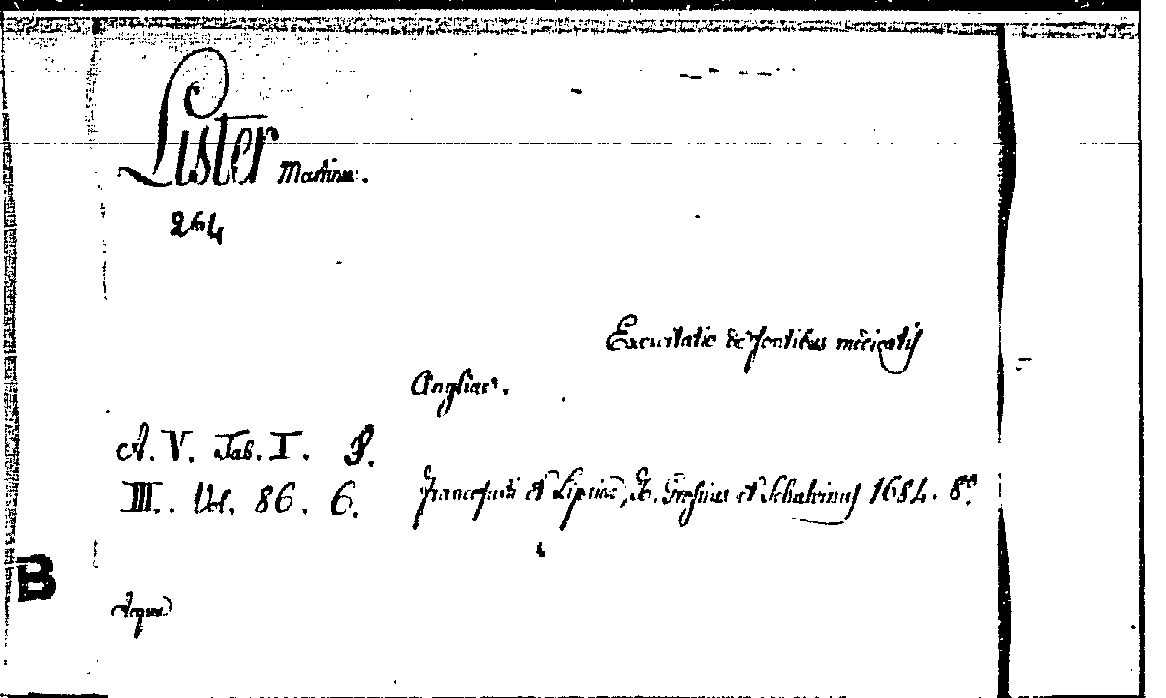 Lister Martinus.
264
Exercitatio de fontibus medicatis
Angliae.
A. V. Tab. I. P.
III. Vol. 86. 6.
Francofurti et Lipsiae, H. Grosius et Schalvinus 1684. 8°.
B
Aquae